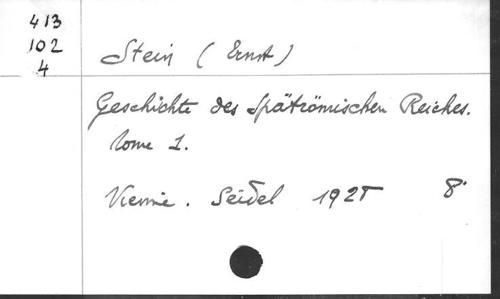 413
102
4
Stein (Ernst)
Geschichte des Spätrömischen Reiches.
tome 1.
Vienne. Seidel 1928 8°